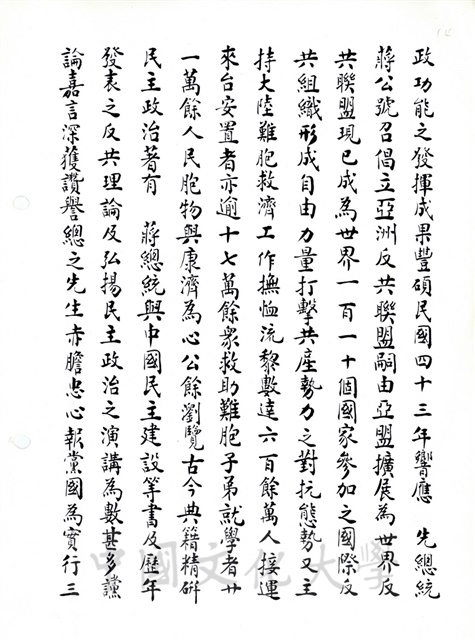 政功能之發揮成果豐碩民國四十三年響應　先總統
蔣公號召倡立亞洲反共聯盟嗣由亞盟擴展為世界反
共聯盟現已成為世界一百一十個國家參加之國際反
共組織形成自由力量打擊共產勢力之對抗態勢又主
持大陸難胞救濟工作撫恤流黎數達六百餘萬人接運
來台安置者亦逾十七萬餘眾救助難胞子弟就學者廿
一萬餘人民胞物與康濟為心公餘瀏覽古今典籍精研
民主政治著有　蔣總統與中國民主建設等書及歷年
發表之反共理論及弘揚民主政治之演講為數甚多讜
論嘉言深獲讚譽總之先生赤膽忠心報黨國為實行三
中國文化大學